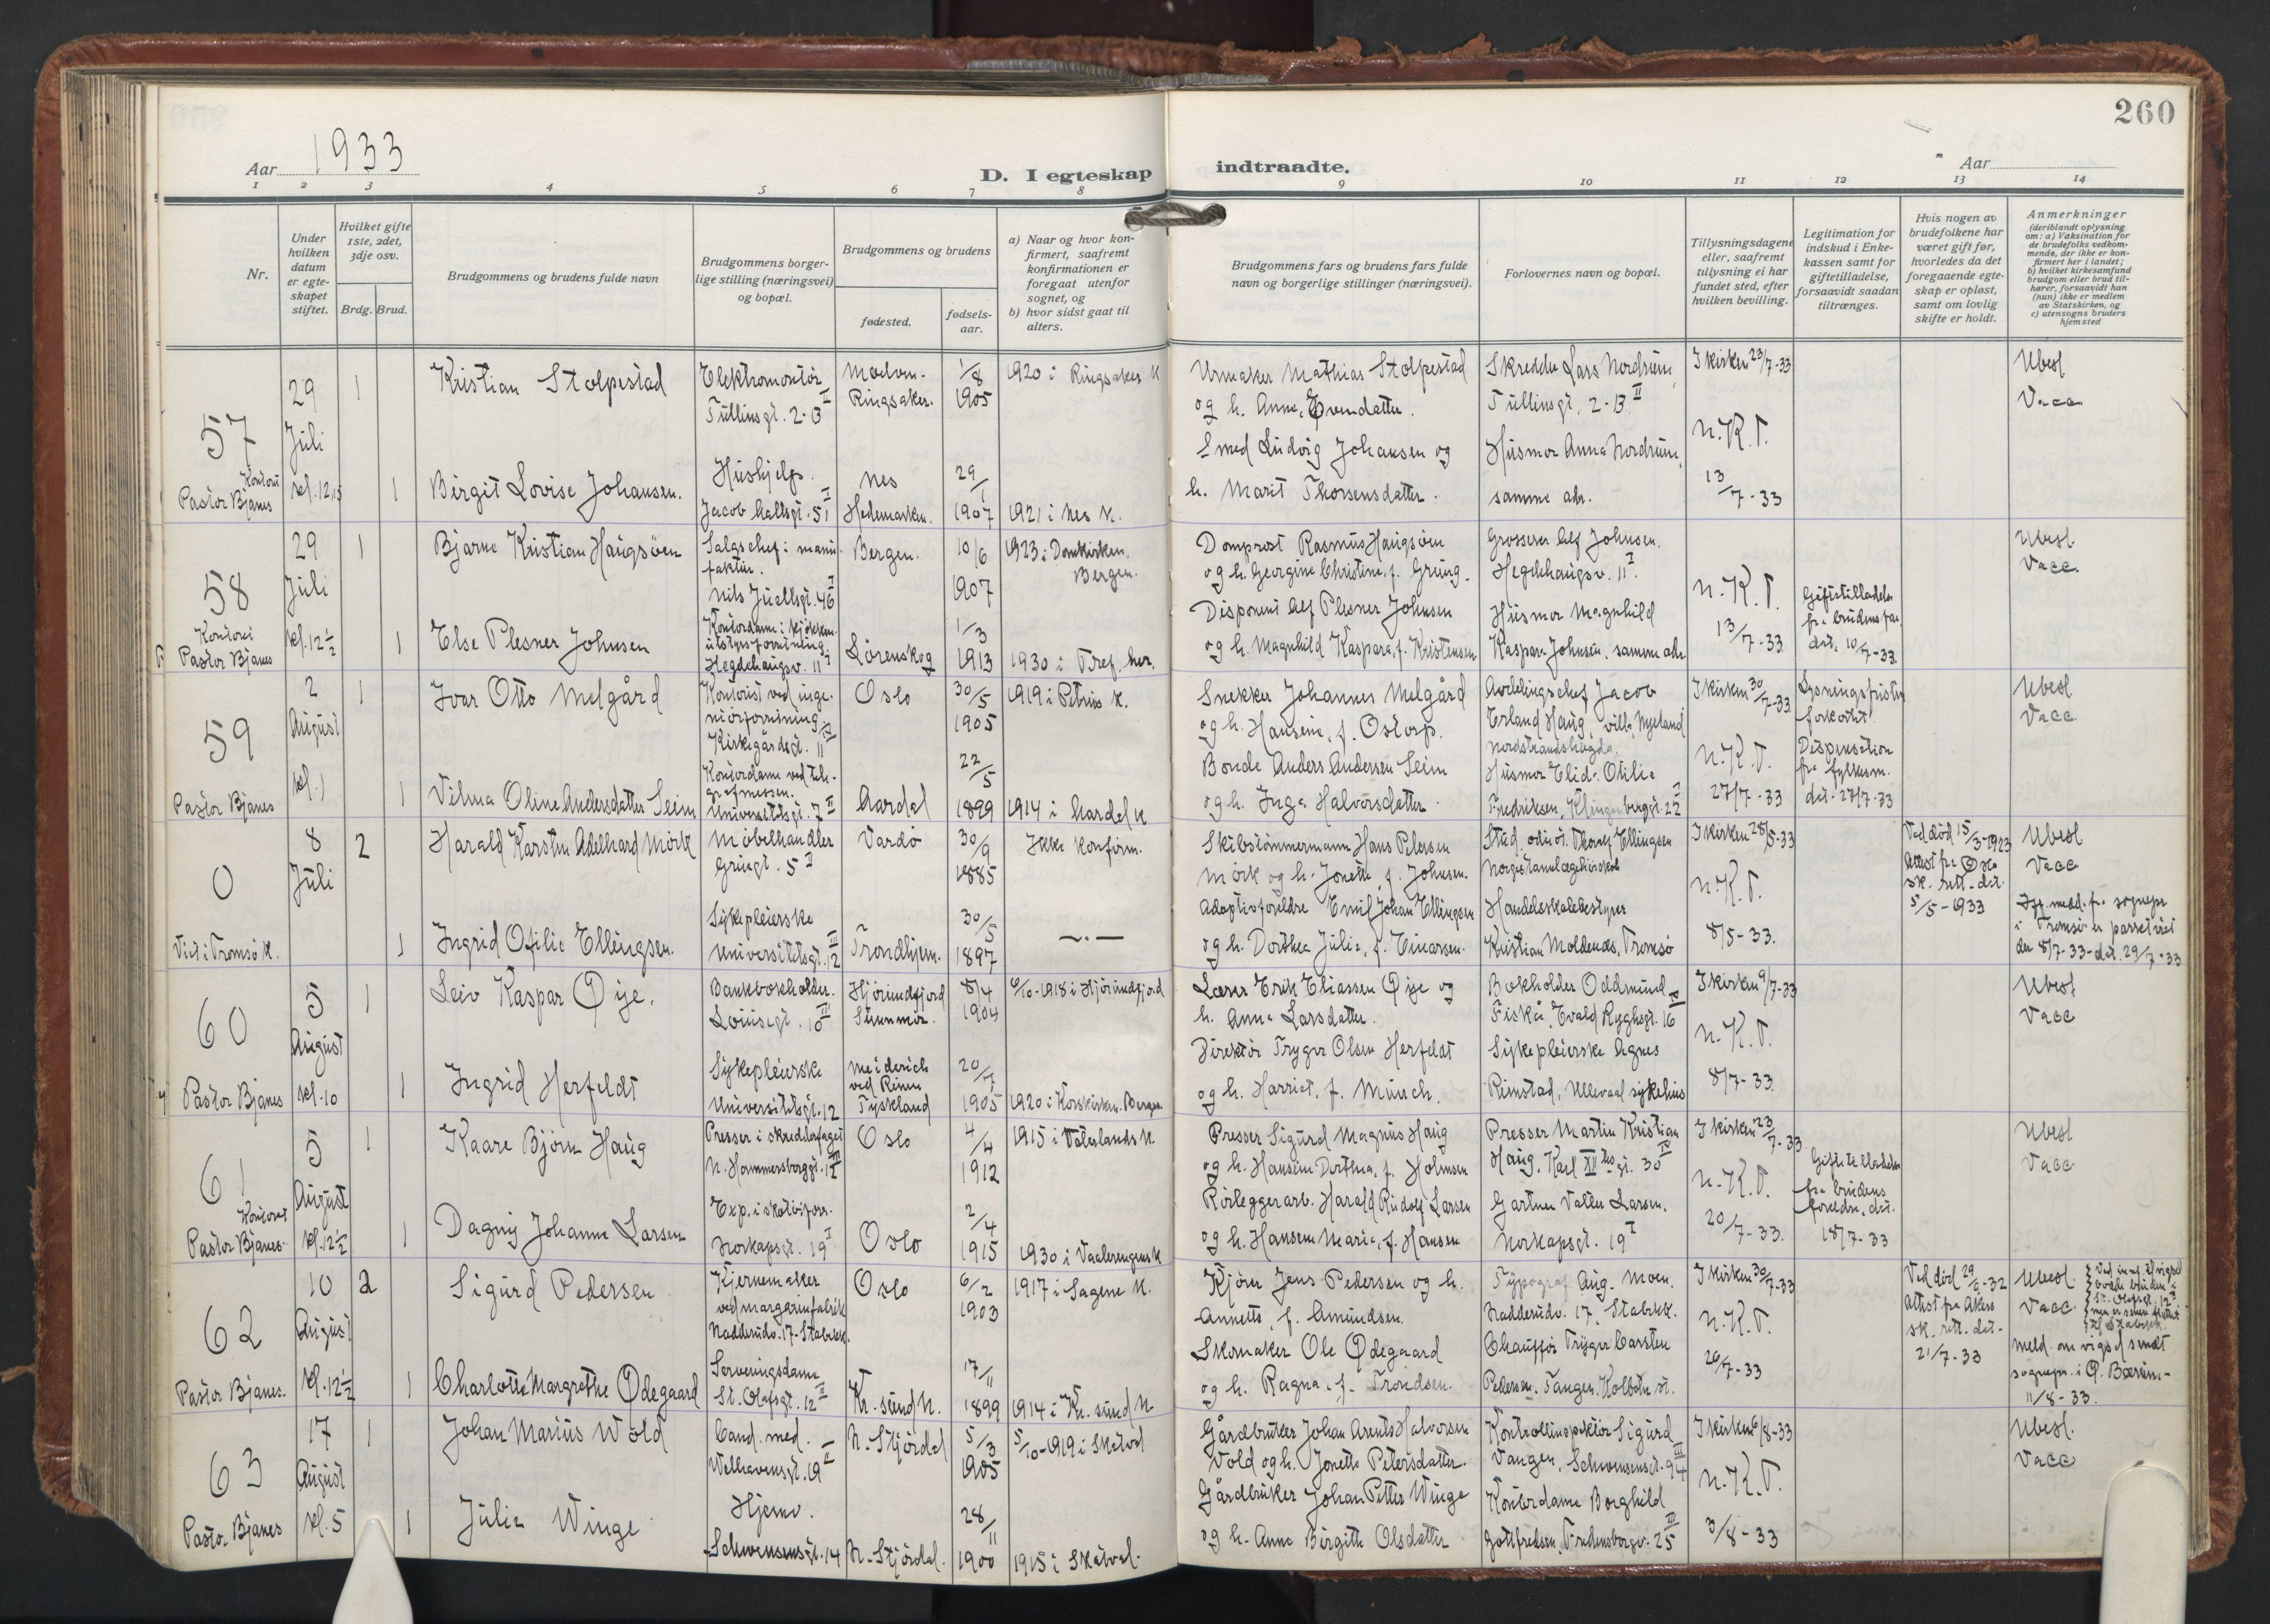 260
Aar 1933
D. I egteskap indtraadte.
Aar
1 2 3 4 5 6 7 8 9 10 11 12 13 14
Nr.
Under hvilken datum er egte-skapet stiftet.
Hvilket gifte 1ste, 2det, 3dje osv.
Brdg. Brud.
Brudgommens og brudens fulde navn
Brudgommens borger-lige stilling (næringsvei) og bopæl.
Brudgommens og brudens
fødested.
fødsels-aar.
a) Naar og hvor kon-firmert, saafremt konfirmationen er foregaat utenfor sognet, og
b) hvor sidst gaat til alters.
Brudgommens fars og brudens fars fulde navn og borgerlige stillinger (næringsvei).
Forlovernes navn og bopæl.
Tillysningsdagene eller, saafremt tillysning ei har fundet sted, efter hvilken bevilling.
Legitimation for indskud i Enke-kassen samt for giftetilladelse, forsaavidt saadan tiltrænges.
Hvis nogen av brudefolkene har været gift før, hvorledes da det foregaaende egte-skap er opløst, samt om lovlig skifte er holdt.
Anmerkninger (deriblandt oplysning om: a) Vaksination for de brudefolks vedkom-mende, der ikke er kon-firmert her i landet; b) hvilket kirkesamfund brudgom eller brud til-hører, forsaavidt han (hun) ikke er medlem av Statskirken, og c) utensogns bruders hjemsted
57
29 Juli kl. 12,15
Kontoret
Pastor Bjanes
1
Kristian Stolpestad
Elektromontör
Tullinsgt. 2-B II
Ringsaker.
1/8 1905
1920 i Ringsaker K
Urmaker Mathias Stolpestad
og h. Anne, Evendatter.
Skredder Lars Nordrum,
Tullinsgt. 2-B II
I kirken 23/7-33
Ubesl
Vacc
1
Birgit Lovise Johansen.
Hushjelp.
Jacob Hallsgt. 5 I
Nes
Hedemarken.
29/1 1907
1921 i Nes K.
Smed Ludvig Johansen og
h. Marit Thorsensdatter.
Husmor Anna Nordrum,
samme adr.
N.K.T.
13/7-33
58
29 Juli kl. 12½
Kontoret
Pastor Bjanes
1
Bjarne Kristian Haugsöen
Salgschef i manu-
faktur.
Nils Juellsgt. 46 I
Bergen.
10/6 1907
1923 i Domkirken,
Bergen.
Domprost Rasmus Haugsöen
og h. Georgine Christine, f. Grung.
Grosserer Alf Johnsen.
Hegdehaugsv. 11 I.
Ubesl.
Vacc.
1
Else Plesner Johnsen
Kontordame i kjökken-
utstyrsforretning.
Hegdehaugsv. 11 I
Lörenskog
1/3 1913
1930 i Tref. her.
Disponent Alf Plesner Johnsen
og h. Magnhild Kaspara, f. Kristensen
Husmor Magnhild
Kaspara Johnsen. samme adr.
N.K.T.
13/7-33
Giftetilladelse
fra brudens far,
dat. 10/7-33.
59
2 August kl. 1
Pastor Bjanes
1
Ivar Otto Melgård
Kontorist ved inge-
niörforretning.
Kirkegårdsgt. 11
Oslo
30/5 1905
1919 i Petrus K.
Snekker Johannes Melgård
og h. Hansine, f. Ostorp.
Avdelingschef Jacob
Erland Haug, villa Myeland
Nordstrandshögda.
I kirken 30/7-33
Lysningsfristen
forkortet
Ubesl
Vacc.
1
Vilma Oline Andersdatter Seim
Kontordame ved tele-
grafmessen.
Universitetsgt. 7 II
Aardal
22/5 1899
1914 i Aardal K
Bonde Anders Andersen Seim
og h. Inga Halvorsdatter.
Husmor Elida Otilie
Fredriksen, Klingenberggt. 22
N.K.T.
27/7-33
Dispensation
fra fylkesm.
dat. 27/7-33
0
8 Juli
Viet i Tromsö K.
2
Harald Karsten Adelhard Mörk
Möbelhandler
Grünrgt. 5 I
Vardö
30/9 1885
Ikke konfirm.
Skibstömmermann Hans Petersen
Mörk og h. Jonette, f. Johnsen.
Stud. odont. Thorleif Ellingsen
Norges tannlægehöiskole
I kirken 28/5-33
Ved död 15/3-1923
Attest fra Oslo
sk. rett. dat.
5/5-1933
Ubesl
Vacc
1
Ingrid Otilie Ellingsen.
Sykepleierske
Universitetsgt. 12 III
Trondhjem.
30/5 1897
Adoptivforeldre Emil Johan Ellingsen
og h. Dorthea Julie, f. Einarsen.
Handelsskolebestyrer
Kristian Moldenæs, Tromsö
N.K.T.
8/5-33.
Iflg. medd. fra sognepr.
i Tromsö er parret viet
der 8/7-33 - dat. 29/7-33
60
5 August kl. 10
Pastor Bjanes
1
Leiv Kaspar Øije.
Bankbokholder.
Louisegt. 10 III
Hjörundfjord
Sunnmör.
8/4 1904
6/10-1918 i Hjörundfjord
Lærer Erik Eliassen Øije og
h. Anna Larsdatter.
Bokholder Oddmund
Fiskå, Evald Ryghsgt. 16
I kirken 9/7-33
Ubesl
Vacc
1
Ingrid Herfeldt
Sykepleierske
Universitetsgt. 12
Meiderich
ved Rhinen
Tyskland
1905
1920 i Korskirken. Bergen.
Direktör Trygve Olsen Herfeldt
og h. Harriet, f. Münch.
Sykepleierske Agnes
Reinstad, Ullevaal sykehus
N.K.T.
8/7-33.
61
5 August kl. 12½
Kontoret
Pastor Bjanes.
1
Kaare Björn Haug
Presser i skredderfaget
N. Hammersborggt. 12
Oslo
4/4 1912
1915 i Vaterlands K
Presser Sigurd Magnus Haug
og h. Hansine Dorthea, f. Holmsen
Presser Martin Kristian
Haug, Karl XII tes gt. 30 IV
I kirken 23/7-33
Ubesl
Vacc
1
Dagny Johanne Larsen
Exp. i skotöiforr.
Norkapsgt. 19 I
Oslo
2/4 1915
1930 i Vaalerengens K
Rörleggerarb. Harald Rudolf Larsen
og h. Hansine Marie, f. Hansen
Gartner Valter Larsen.
Norkapsgt. 19 I
N.K.T.
20/7-33.
Giftetilladelse
fra brudens
foreldre, dat.
18/7-33
62
10 August kl. 12½
Pastor Bjanes.
2
Sigurd Pedersen
Kjernemaker
ved margarinfabrik
Nadderudv. 17 - Stabekk.
Oslo
6/2 1903
1917 i Sagene K.
Kjörer Jens Pedersen og h.
Annette, f. Amundsen.
Typograf Aug. Moen.
Nadderudv. 17, Stabekk.
I kirken 30/7-33
Attest fra Akers
sk. rett. dat.
21/7-33
Ubesl.
Vacc
1
Charlotte Margrethe Ødegaard
Serveringsdame
St. Olafsgt. 12 II
Kr.sund N.
17/11 1899
1914 i Kr.sund N
Skomaker Ole Ødegaard
og h. Ragna, f. Trondsen.
Chauffør Trygve Carsten
Pedersen, Tangen, Kolbotn st.
N.K.T.
26/7-33
Meld. om vigsel sendt
sognepr. i Ø. Bærum-
11/8-33.
63
17 August kl. 5
Pastor Bjanes
1
Johan Marius Wold
Cand. med.
Welhavensgt. 19 II
N. Stjördal
5/3 1905
5/10-1919 i Skatval
Gårdbruker Johan Arents Halvorsen
Vold og h. Jonette Petersdatter.
Kontrollinspektör Sigurd
Vangen, Schwensensgt. 94
I kirken 6/8-33
Ubesl.
Vacc
1
Julie Winge
Hjemv.
Schwensensgt. 14
N. Stjördal.
28/11 1900
1915 i Skatval.
Gårdbruker Johan Petter Winge
og h. Anne Birgitte Olsdatter
Kontordame Borghild
Gottfredsen, Fredensborgv. 25 III
N.K.T.
3/8-33